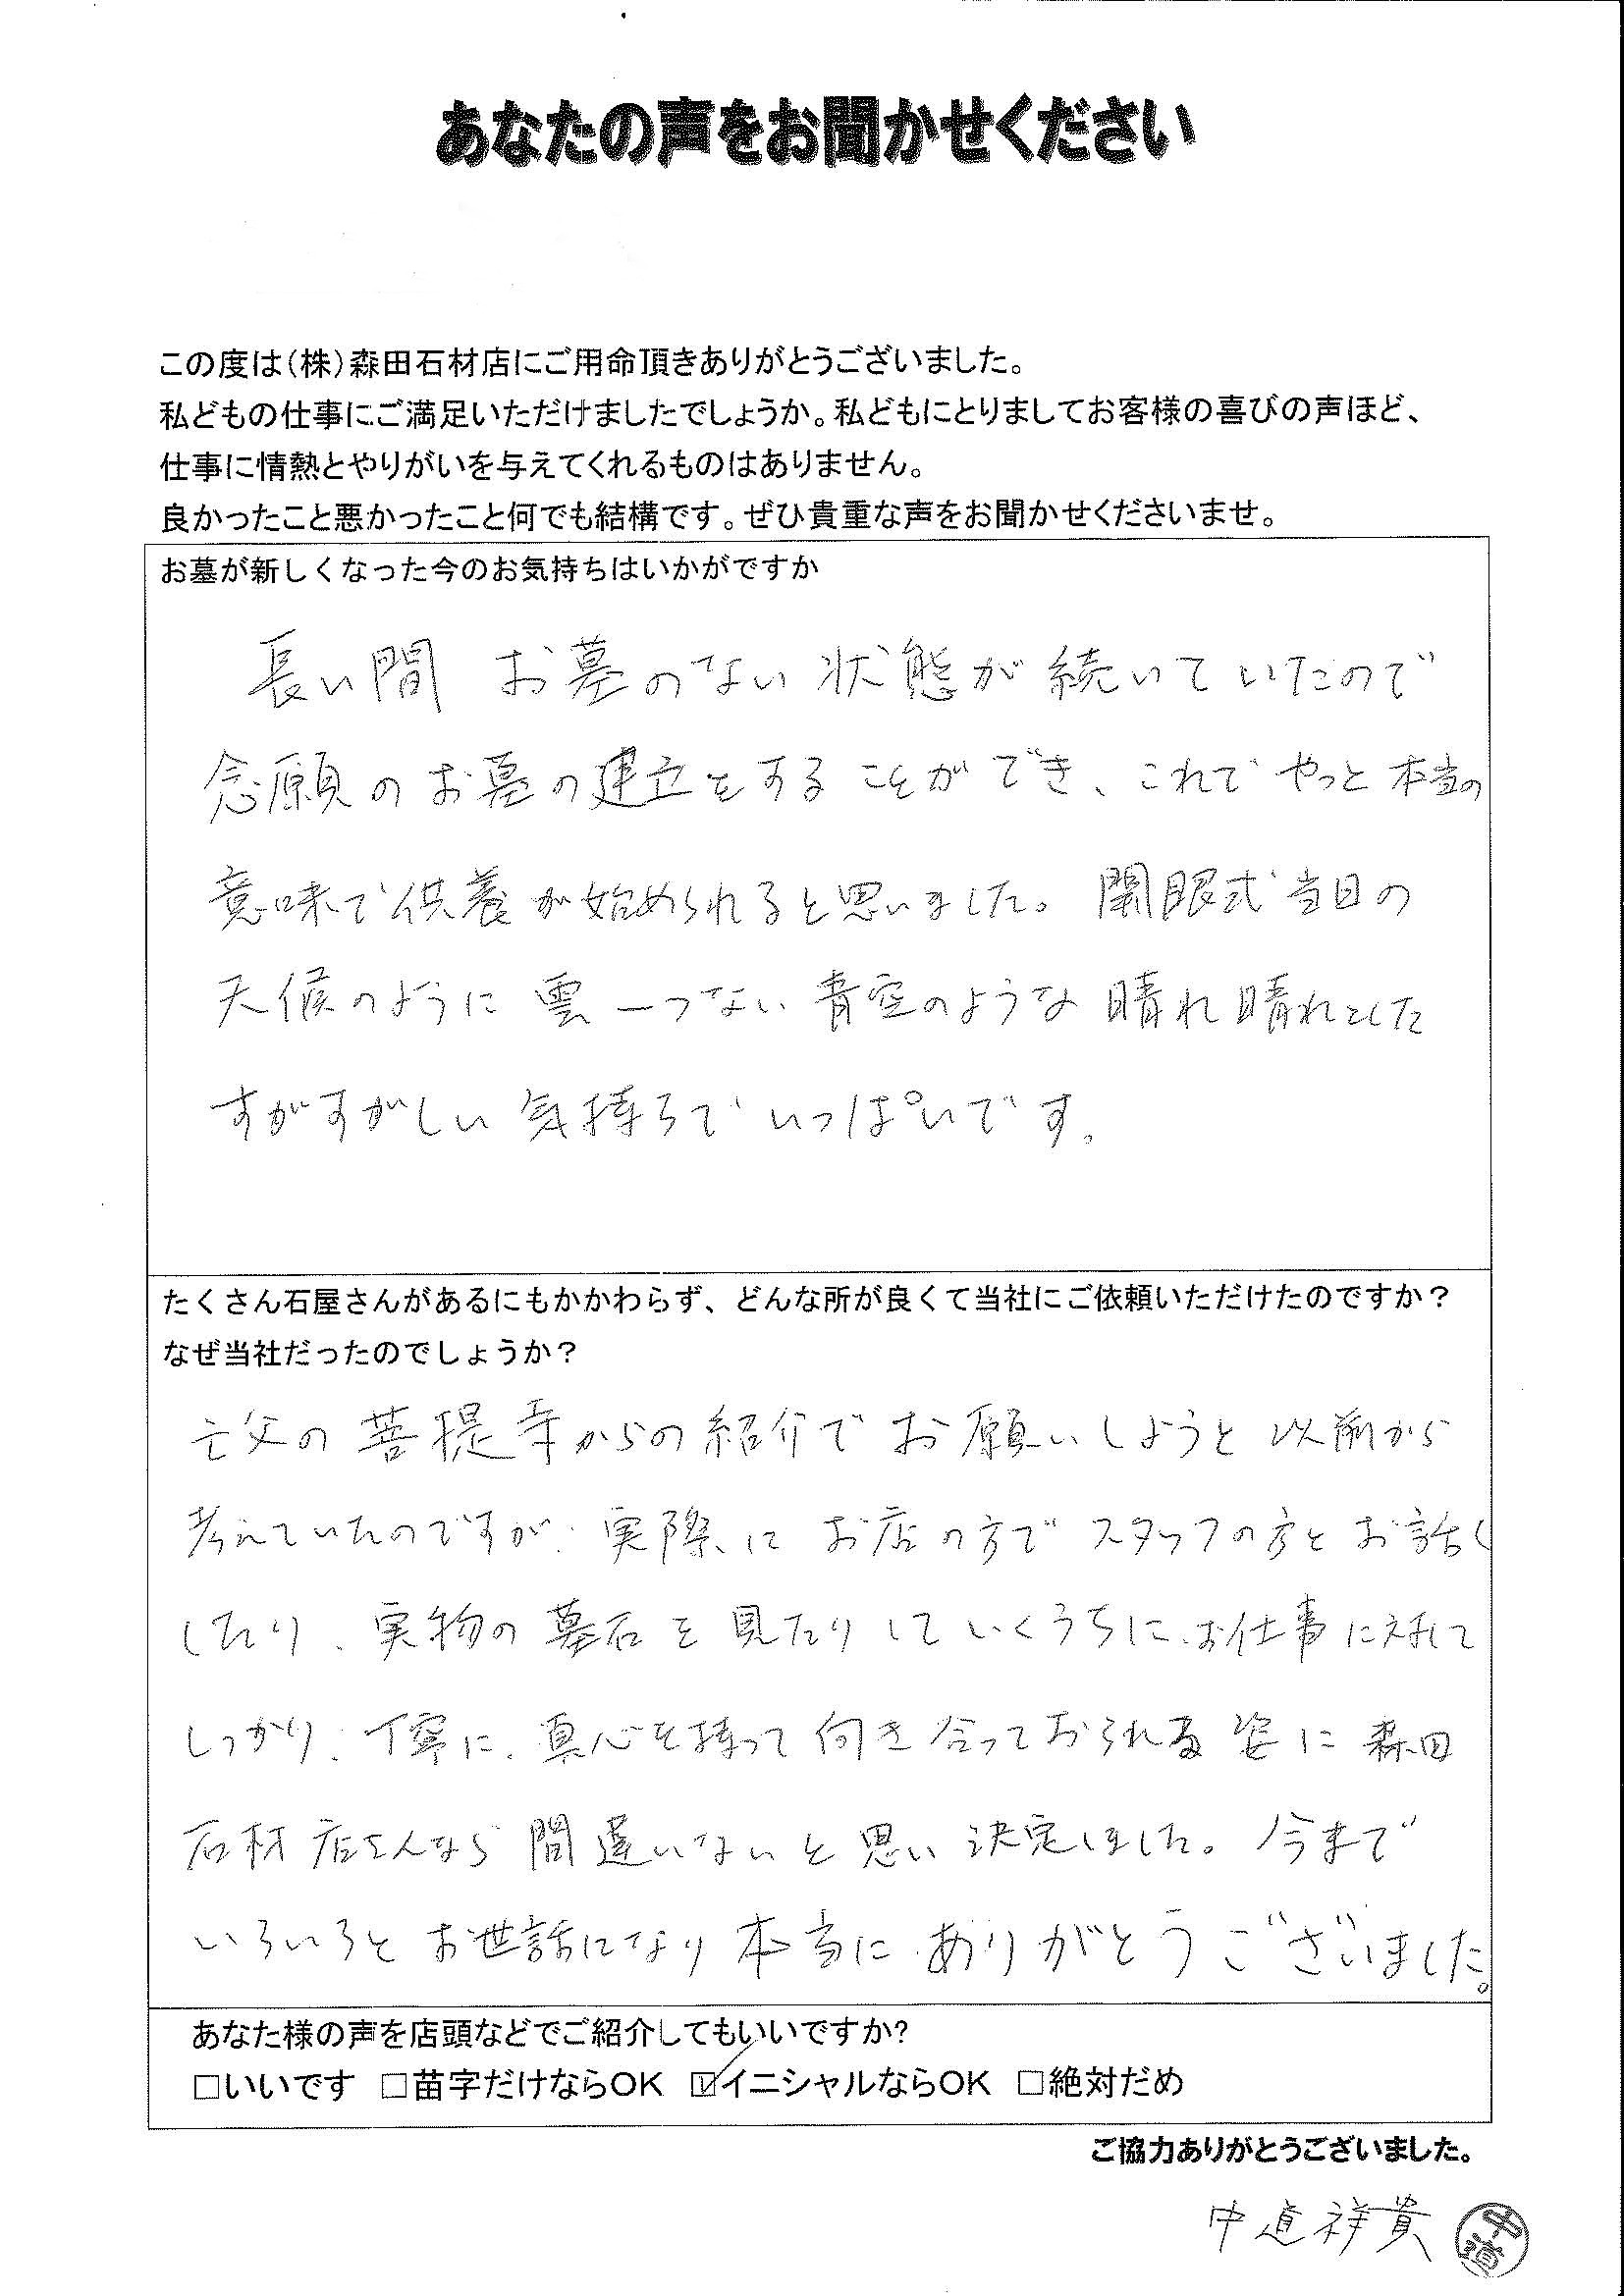 あなたの声をお聞かせください
この度は(株)森田石材店にご用命頂きありがとうございました。
私どもの仕事にご満足いただけましたでしょうか。私どもにとりましてお客様の喜びの声ほど、
仕事に情熱とやりがいを与えてくれるものはありません。
良かったこと悪かったこと何でも結構です。ぜひ貴重な声をお聞かせくださいませ。
お墓が新しくなった今のお気持ちはいかがですか
長い間 お墓のない状態が続いていたので
念願のお墓の建立をすることができ、これでやっと本当の
意味で供養が始められると思いました。開眼式当日の
天候のように雲一つない青空のような晴れ晴れとした
すがすがしい気持ちでいっぱいです。
たくさん石屋さんがあるにもかかわらず、どんな所が良くて当社にご依頼いただけたのですか?
なぜ当社だったのでしょうか?
亡父の菩提寺からの紹介でお願いしようと以前から
考えていたのですが、実際にお店の方でスタッフの方とお話し
したり、実物の墓石を見たりしていくうちに、お仕事に対して
しっかり、丁寧に、真心を持って向き合っておられる姿に森田
石材店さんなら間違いないと思い決定しました。今まで
いろいろとお世話になり本当にありがとうございました。
あなた様の声を店頭などでご紹介してもいいですか?
□いいです □苗字だけならOK ☑イニシャルならOK □絶対だめ
ご協力ありがとうございました。
中道祥貴 中道